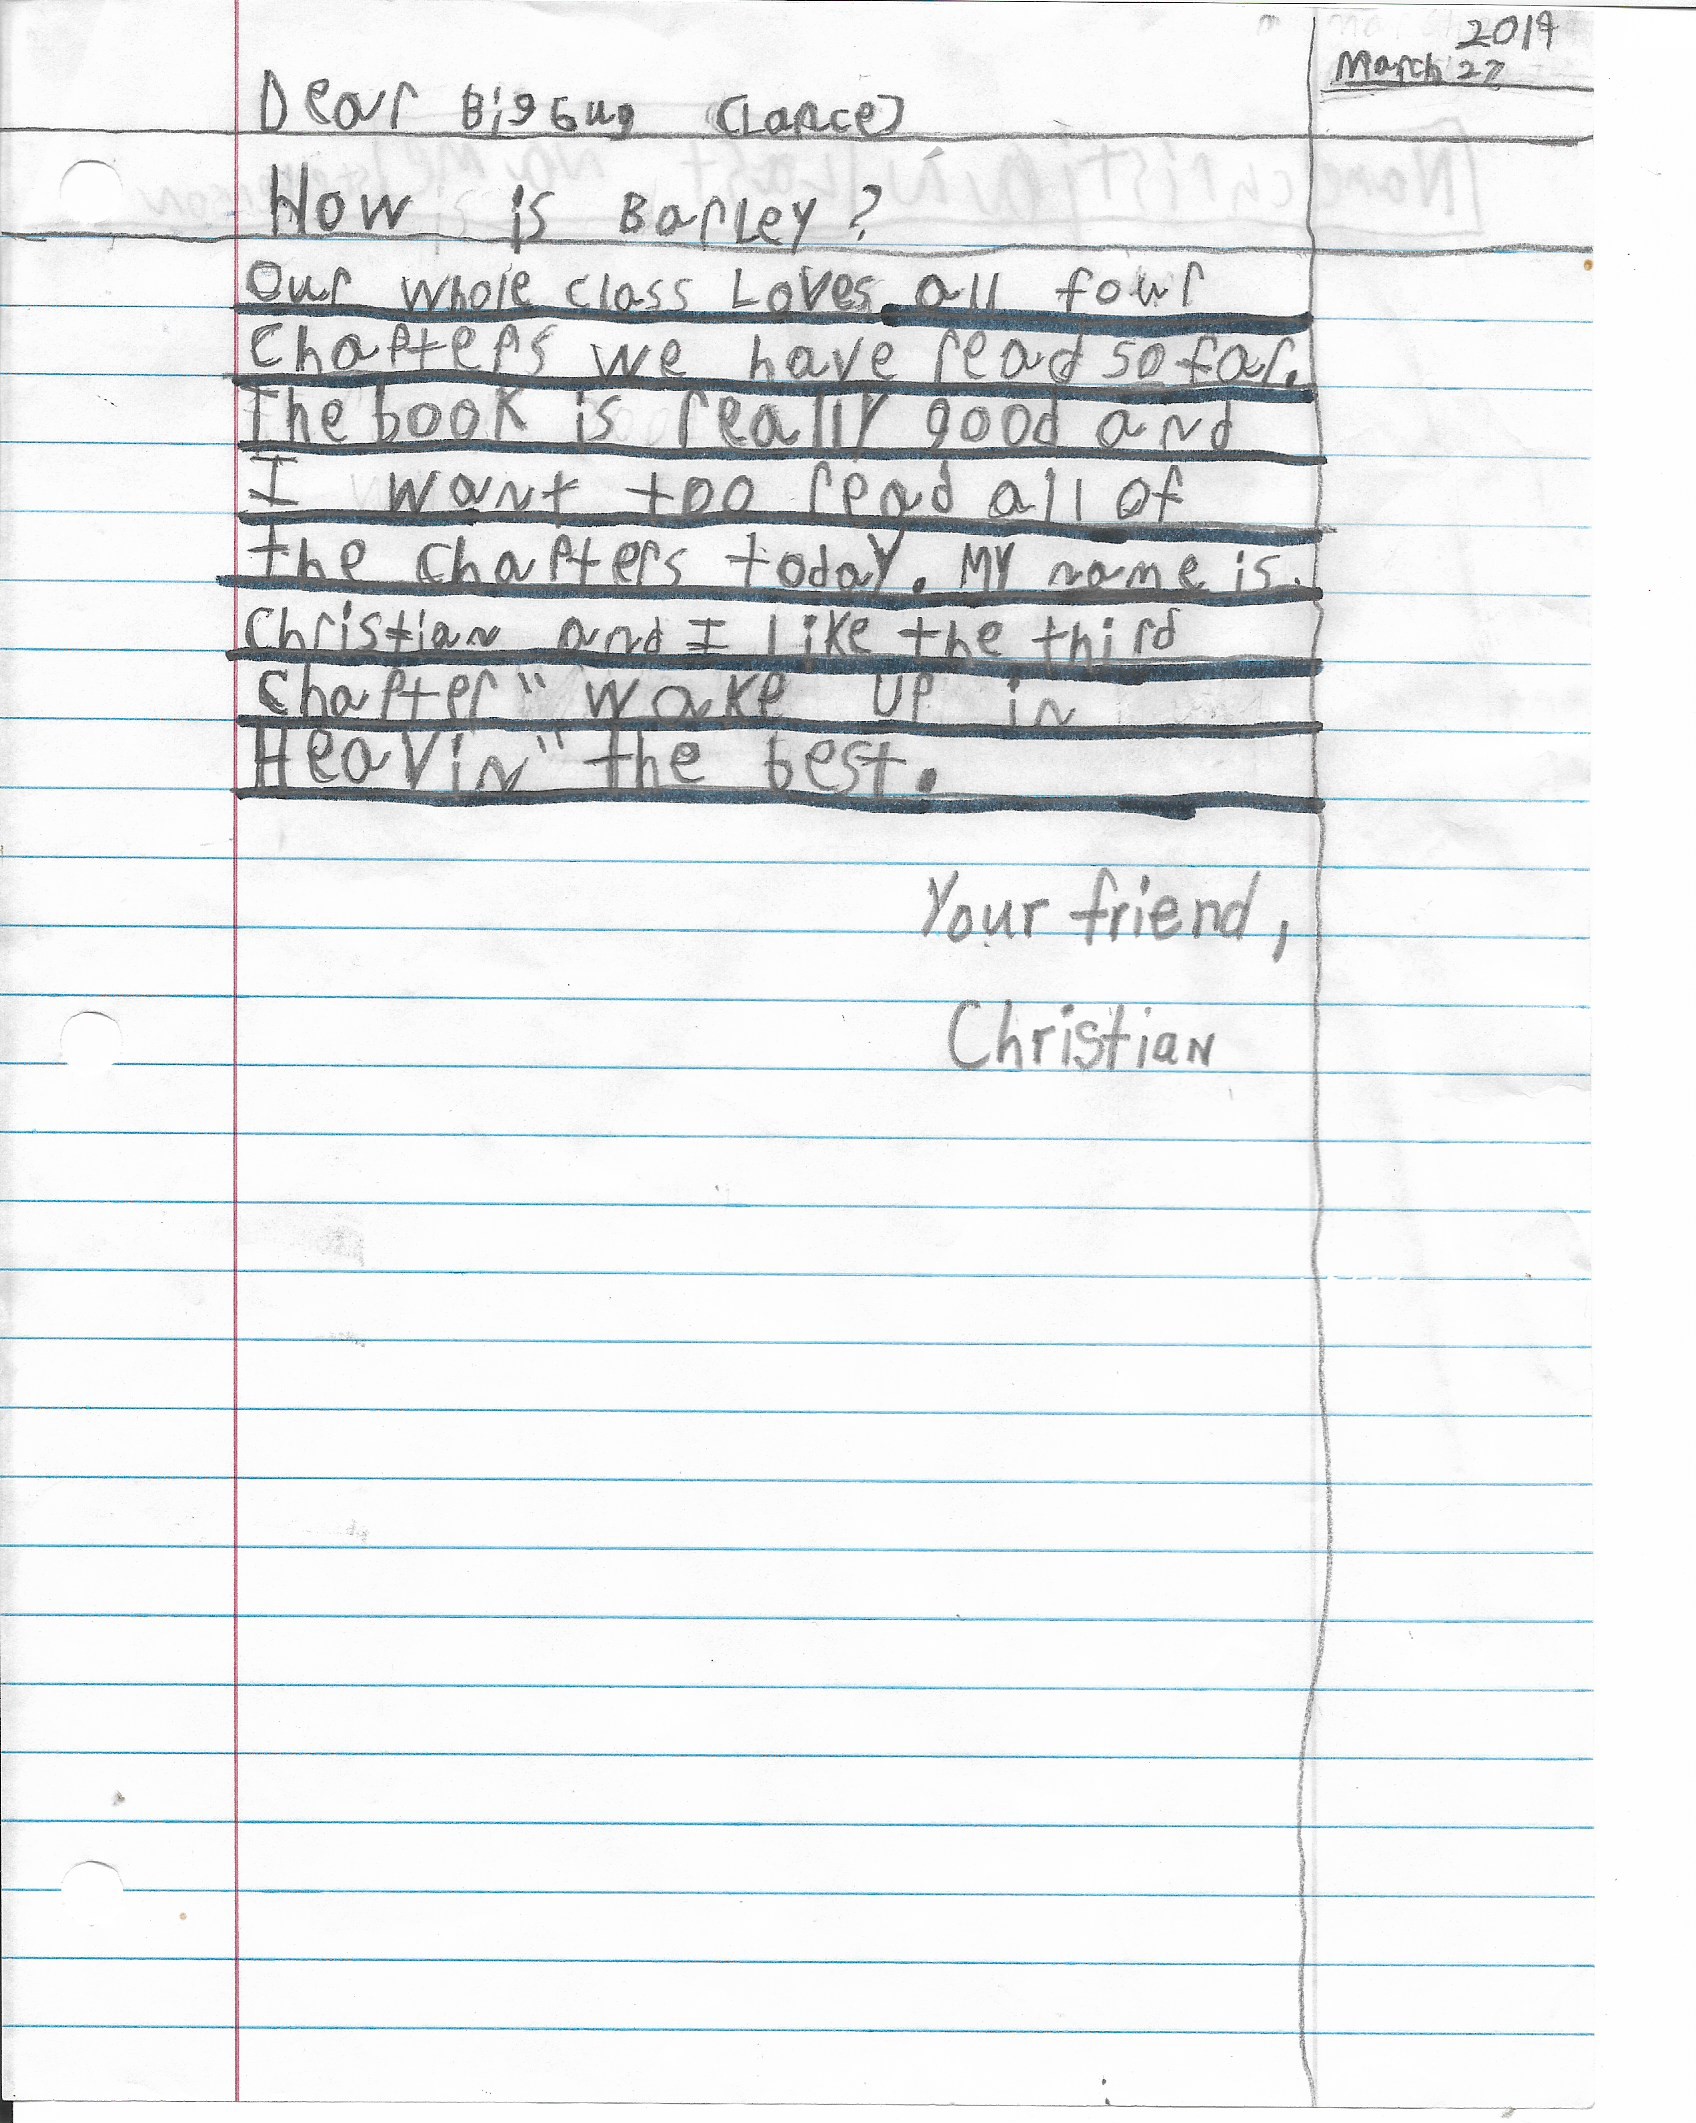 2014
March 27
Dear Big Guy (Lance)
How is Barley?
Our whole class Loves all four
chapters we have read so far.
The book is really good and
I want too read all of
the chapters today. My name is
Christian and I like the third
chapter "wake up in
Heavin" the best.
Your friend,
Christian